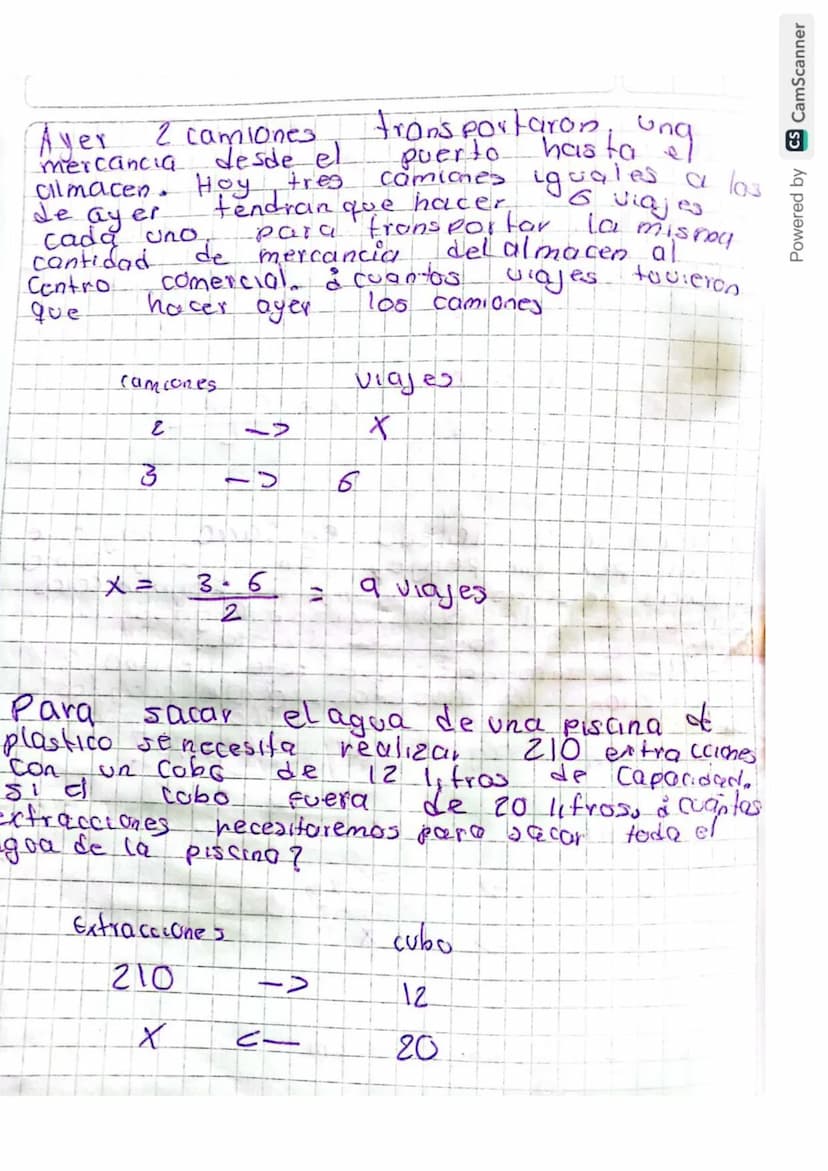 Ayer 2 camiones transportaron una
mercancia desde el puerto hasta el
almacen. Hoy tres camiones iguales a los
de ayer tendran que hacer 6 viajes
cada uno para transportar la misma
cantidad de mercancia del almacen al
Centro comercial. ¿cuantos viajes tuvieron
que hacer ayer los camiones
camiones viajes
2 -> X
3 -> 6
x = 3 . 6 / 2 = 9 viajes
Para sacar el agua de una piscina de
plastico se necesita realizar 210 extracciones
con un cobo de 12 litros de capacidad.
si el cobo fuera de 20 litros, ¿cuantas
extracciones necesitaremos para sacar toda el
agoa de la piscina?
Extracciones cubo
210 -> 12
X <- 20
Powered by CS CamScanner